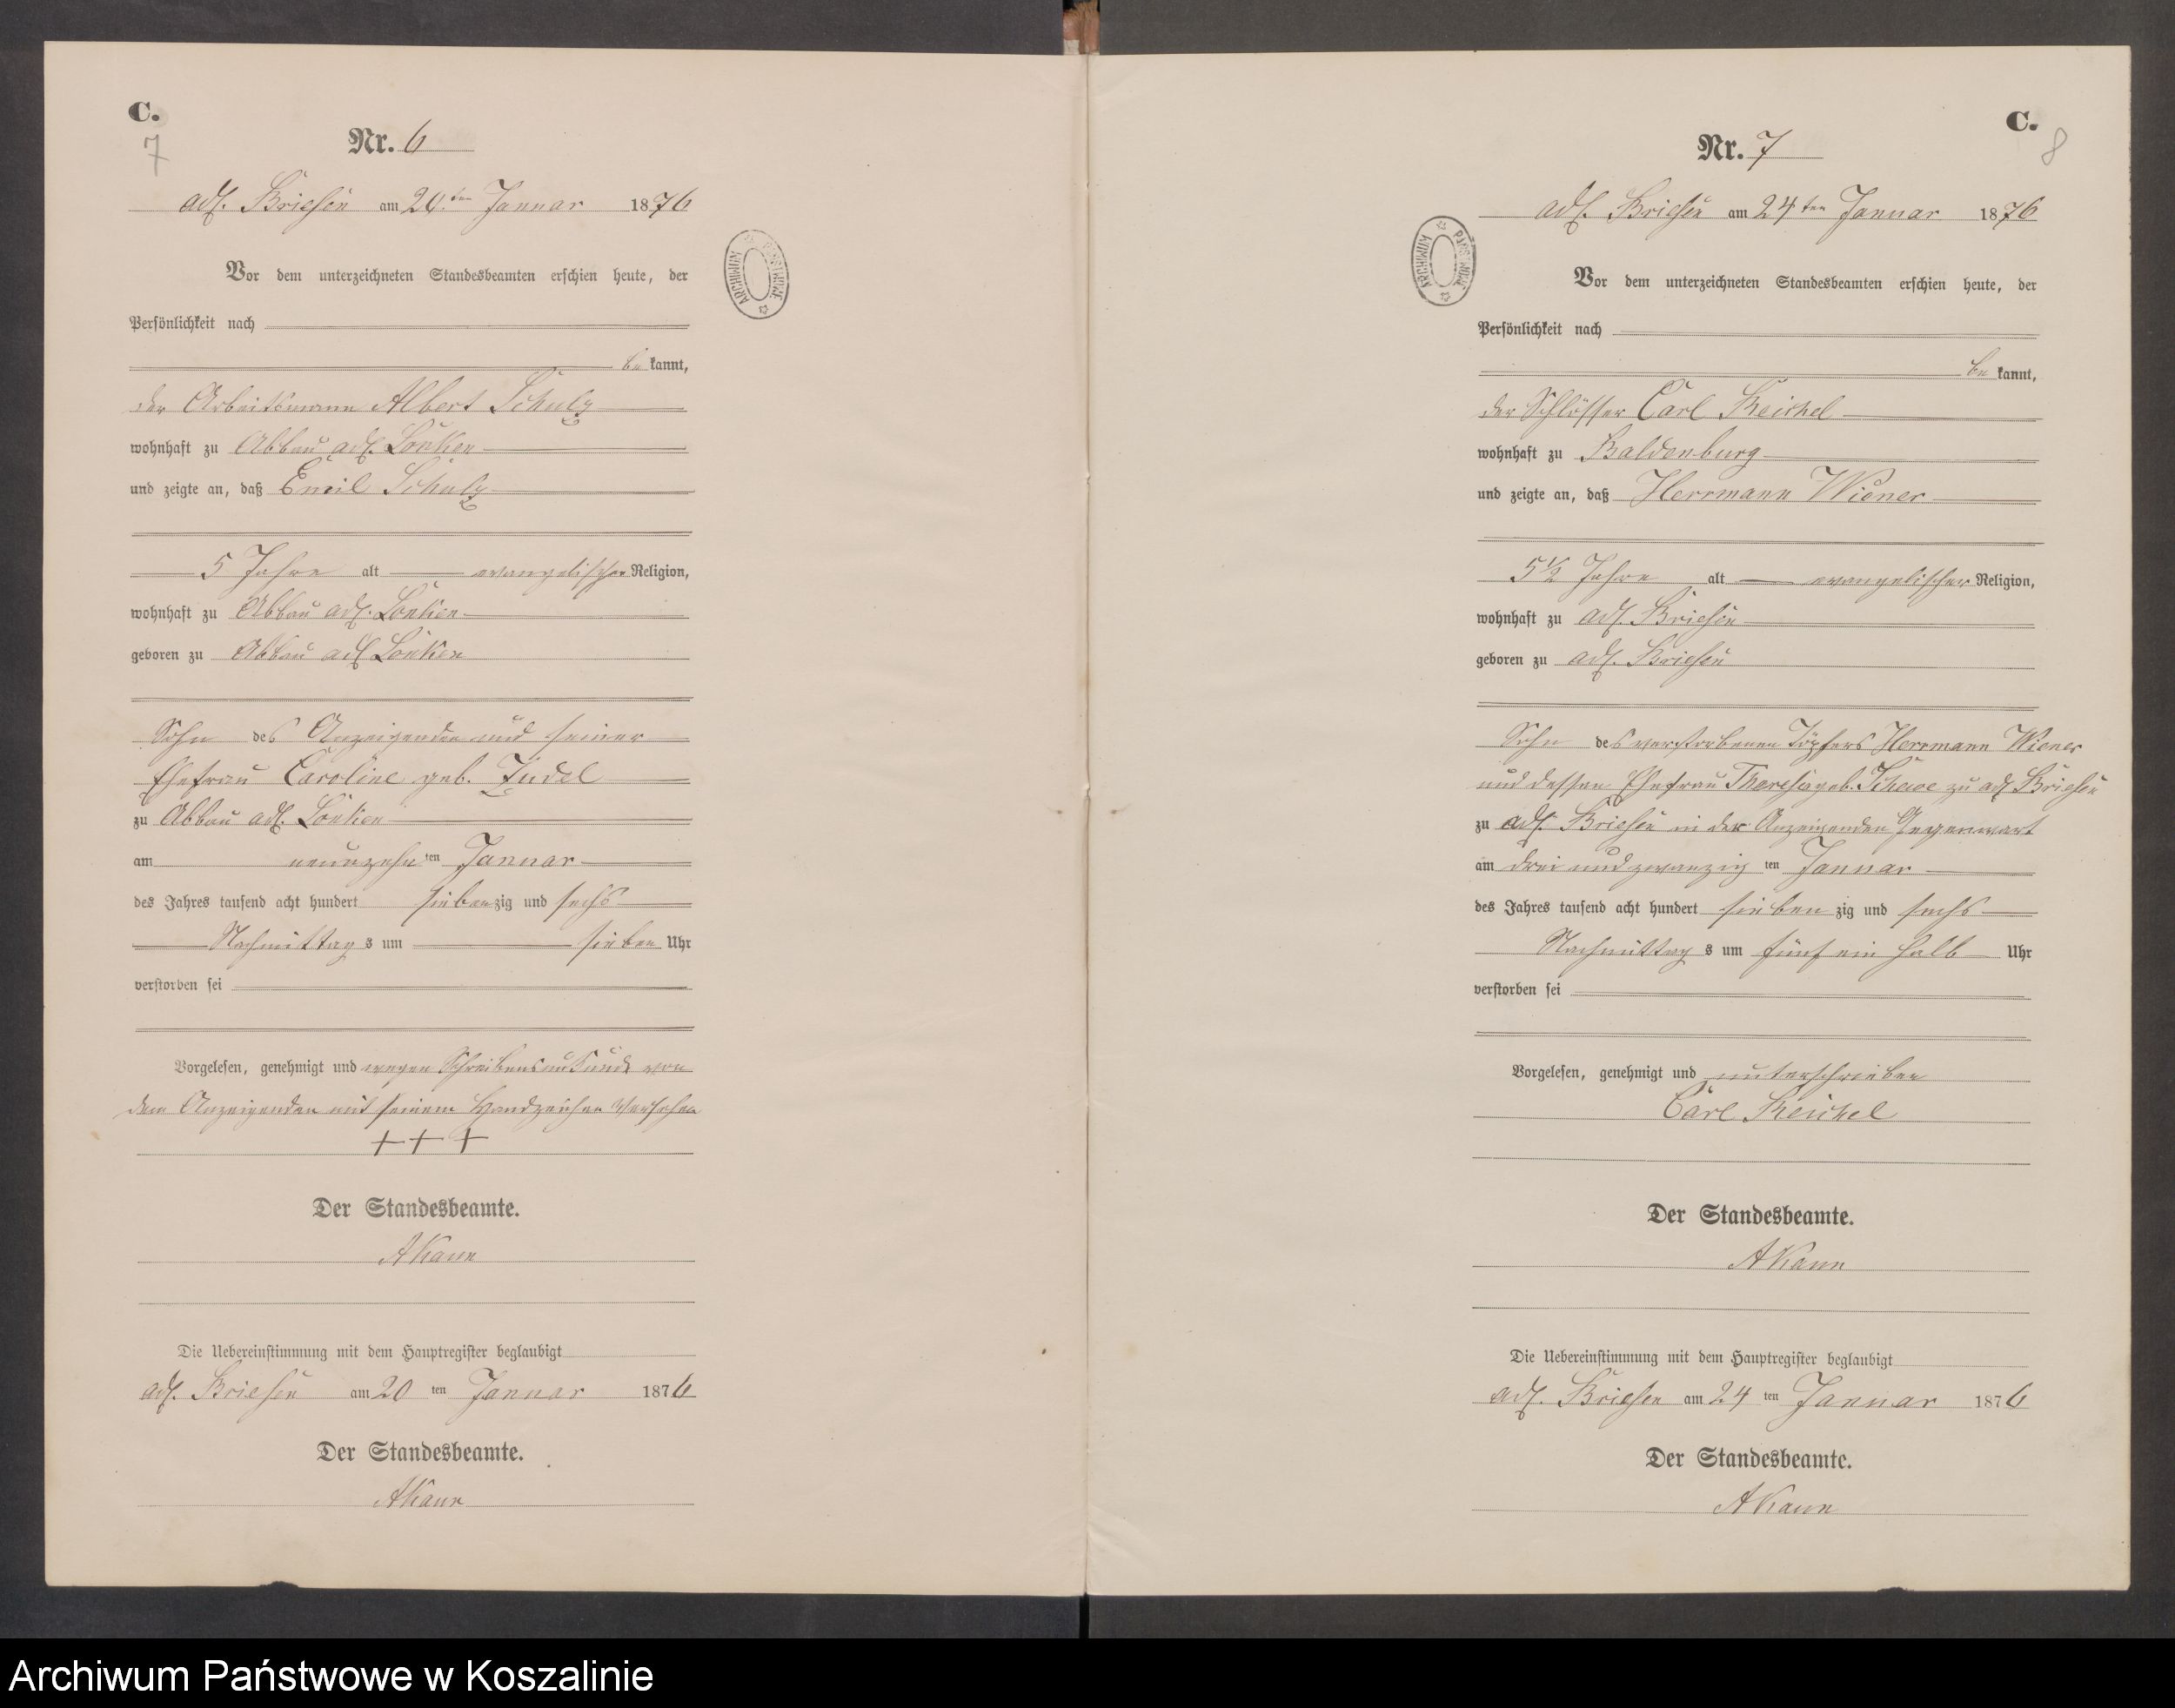 C.
7
Nr. 6
adl. Briesen am 20ten Januar 1876
Vor dem unterzeichneten Standesbeamten erschien heute, der
Persönlichkeit nach
be kannt,
der Arbeitsmann Albert Schulz
wohnhaft zu Abbau adl. Lonken
und zeigte an, daß Emil Schulz
5 Jahre alt evangelischer Religion,
wohnhaft zu Abbau adl. Lonken
geboren zu Abbau adl. Lonken
Sohn des Anzeigenden und seiner
Ehefrau Caroline geb. Judel
zu Abbau adl. Lonken
am neunzehn ten Januar
des Jahres tausend acht hundert siebenzig und sechs
Nachmittag s um sieben Uhr
verstorben sei
Vorgelesen, genehmigt und wegen Schreibensunkunde von
dem Anzeigenden mit seinem Handzeichen versehen
+++
Der Standesbeamte.
AKann
Die Uebereinstimmung mit dem Hauptregister beglaubigt
adl. Briesen am 20 ten Januar 1876
Der Standesbeamte.
AKann
ARCHIWUM PAŃSTWOWE
C.
8
Nr. 7
adl. Briesen am 24ten Januar 1876
Vor dem unterzeichneten Standesbeamten erschien heute, der
Persönlichkeit nach
be kannt,
der Schlösser Carl Reichel
wohnhaft zu Baldenburg
und zeigte an, daß Herrmann Wiener
5½ Jahre alt evangelischer Religion,
wohnhaft zu adl. Briesen
geboren zu adl. Briesen
Sohn des verstorbenen Töpfers Herrmann Wiener
und dessen Ehefrau Theresia geb. Schewe zu adl. Briesen
zu adl. Briesen in der Anzeigenden Gegenwart
am drei und zwanzig ten Januar
des Jahres tausend acht hundert sieben zig und sechs
Nachmittag s um fünf ein halb Uhr
verstorben sei
Vorgelesen, genehmigt und unterschrieben
Carl Reichel
Der Standesbeamte.
AKann
Die Uebereinstimmung mit dem Hauptregister beglaubigt
adl. Briesen am 24 ten Januar 1876
Der Standesbeamte.
AKann
ARCHIWUM PAŃSTWOWE
Archiwum Państwowe w Koszalinie